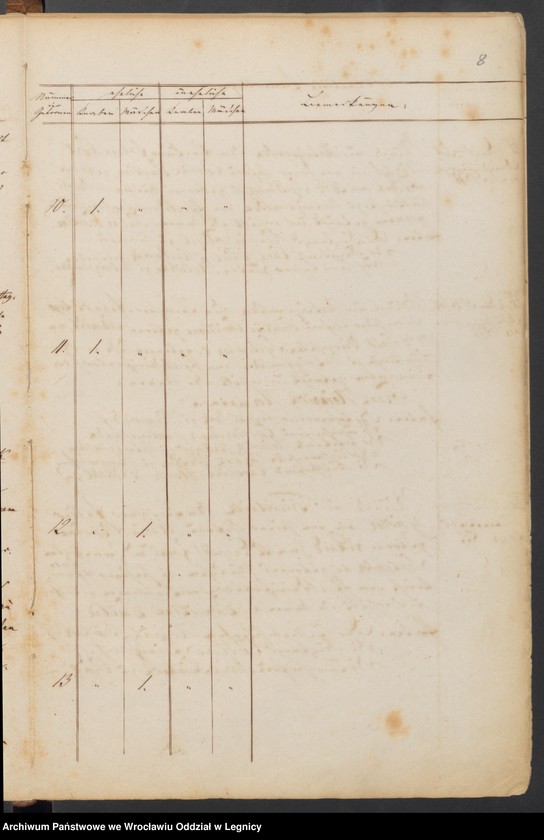 8
eheliche uneheliche
Nummer
Geborenen Knaben Mädchen Knaben Mädchen Bemerkungen.
10. 1. " " "
11. 1. " " "
12 " 1. " "
13 " 1. " "
Archiwum Państwowe we Wrocławiu Oddział w Legnicy